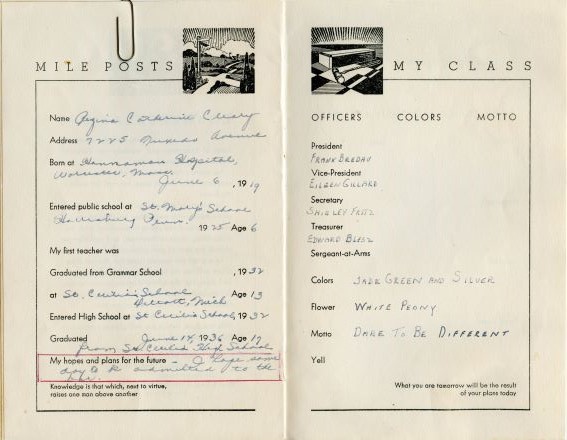 MILE POSTS
Name Regina Catherine Cleary
Address 7225 Tuxedo Avenue
Born at Hannaman Hospital,
Worcester, Mass.
June 6, 1919
Entered public school at St. Mary's School
Harrisburg Penn. 1925 Age 6
My first teacher was
Graduated from Grammar School , 1932
at St. Cecilia's School Age 13
Detroit, Mich
Entered High School at St Cecilia School, 1932
Graduated June 14, 1936 Age 17
from St Cecilia High School
My hopes and plans for the future - I hope some
day to be admitted to the
bar.
Knowledge is that which, next to virtue,
raises one man above another
MY CLASS
OFFICERS COLORS MOTTO
President
FRANK
Vice-President
EILEEN GILLARD
Secretary
SHIRLEY FRITZ
Treasurer
EDWARD
Sergeant-at-Arms
Colors JADE GREEN AND SILVER
Flower WHITE PEONY
Motto DARE TO BE DIFFERENT
Yell
What you are tomorrow will be the result
of your plans today